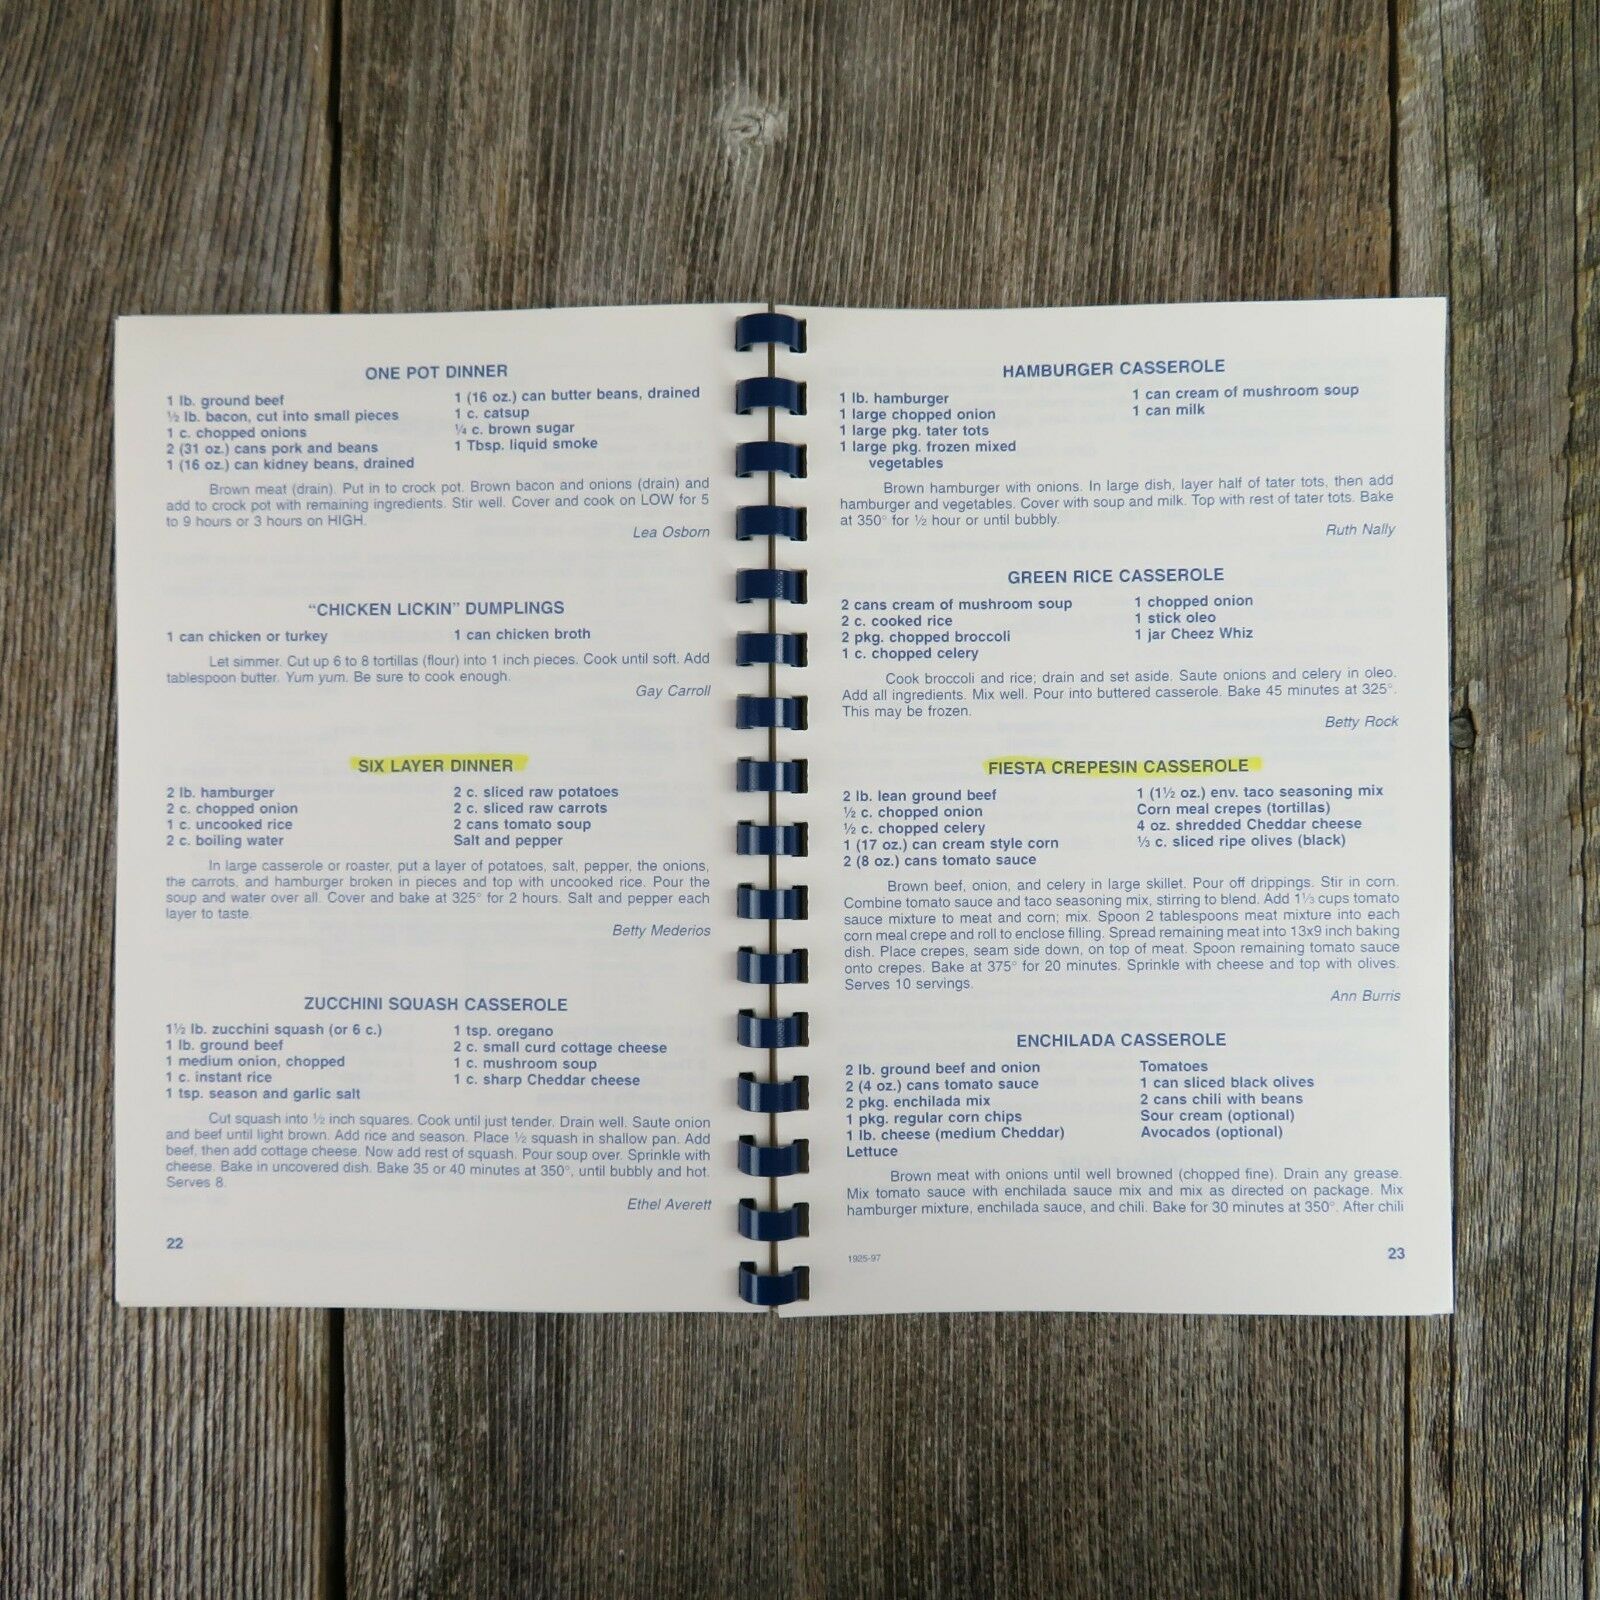 ONE POT DINNER
1 lb. ground beef
½ lb. bacon, cut into small pieces
1 c. chopped onions
2 (31 oz.) cans pork and beans
1 (16 oz.) can kidney beans, drained
1 (16 oz.) can butter beans, drained
1 c. catsup
¼ c. brown sugar
1 Tbsp. liquid smoke
Brown meat (drain). Put in to crock pot. Brown bacon and onions (drain) and
add to crock pot with remaining ingredients. Stir well. Cover and cook on LOW for 5
to 9 hours or 3 hours on HIGH.
Lea Osborn
"CHICKEN LICKIN" DUMPLINGS
1 can chicken or turkey
1 can chicken broth
Let simmer. Cut up 6 to 8 tortillas (flour) into 1 inch pieces. Cook until soft. Add
tablespoon butter. Yum yum. Be sure to cook enough.
Gay Carroll
SIX LAYER DINNER
2 lb. hamburger
2 c. chopped onion
1 c. uncooked rice
2 c. boiling water
2 c. sliced raw potatoes
2 c. sliced raw carrots
2 cans tomato soup
Salt and pepper
In large casserole or roaster, put a layer of potatoes, salt, pepper, the onions,
the carrots, and hamburger broken in pieces and top with uncooked rice. Pour the
soup and water over all. Cover and bake at 325° for 2 hours. Salt and pepper each
layer to taste.
Betty Mederios
ZUCCHINI SQUASH CASSEROLE
1½ lb. zucchini squash (or 6 c.)
1 lb. ground beef
1 medium onion, chopped
1 c. instant rice
1 tsp. season and garlic salt
1 tsp. oregano
2 c. small curd cottage cheese
1 c. mushroom soup
1 c. sharp Cheddar cheese
Cut squash into ½ inch squares. Cook until just tender. Drain well. Saute onion
and beef until light brown. Add rice and season. Place ½ squash in shallow pan. Add
beef, then add cottage cheese. Now add rest of squash. Pour soup over. Sprinkle with
cheese. Bake in uncovered dish. Bake 35 or 40 minutes at 350°, until bubbly and hot.
Serves 8.
Ethel Averett
22
HAMBURGER CASSEROLE
1 lb. hamburger
1 large chopped onion
1 large pkg. tater tots
1 large pkg. frozen mixed
vegetables
1 can cream of mushroom soup
1 can milk
Brown hamburger with onions. In large dish, layer half of tater tots, then add
hamburger and vegetables. Cover with soup and milk. Top with rest of tater tots. Bake
at 350° for ½ hour or until bubbly.
Ruth Nally
GREEN RICE CASSEROLE
2 cans cream of mushroom soup
2 c. cooked rice
2 pkg. chopped broccoli
1 c. chopped celery
1 chopped onion
1 stick oleo
1 jar Cheez Whiz
Cook broccoli and rice; drain and set aside. Saute onions and celery in oleo.
Add all ingredients. Mix well. Pour into buttered casserole. Bake 45 minutes at 325°.
This may be frozen.
Betty Rock
FIESTA CREPESIN CASSEROLE
2 lb. lean ground beef
½ c. chopped onion
½ c. chopped celery
1 (17 oz.) can cream style corn
2 (8 oz.) cans tomato sauce
1 (1½ oz.) env. taco seasoning mix
Corn meal crepes (tortillas)
4 oz. shredded Cheddar cheese
⅓ c. sliced ripe olives (black)
Brown beef, onion, and celery in large skillet. Pour off drippings. Stir in corn.
Combine tomato sauce and taco seasoning mix, stirring to blend. Add 1⅓ cups tomato
sauce mixture to meat and corn; mix. Spoon 2 tablespoons meat mixture into each
corn meal crepe and roll to enclose filling. Spread remaining meat into 13x9 inch baking
dish. Place crepes, seam side down, on top of meat. Spoon remaining tomato sauce
onto crepes. Bake at 375° for 20 minutes. Sprinkle with cheese and top with olives.
Serves 10 servings.
Ann Burris
ENCHILADA CASSEROLE
2 lb. ground beef and onion
2 (4 oz.) cans tomato sauce
2 pkg. enchilada mix
1 pkg. regular corn chips
1 lb. cheese (medium Cheddar)
Lettuce
Tomatoes
1 can sliced black olives
2 cans chili with beans
Sour cream (optional)
Avocados (optional)
Brown meat with onions until well browned (chopped fine). Drain any grease.
Mix tomato sauce with enchilada sauce mix and mix as directed on package. Mix
hamburger mixture, enchilada sauce, and chili. Bake for 30 minutes at 350°. After chili
1925-97
23